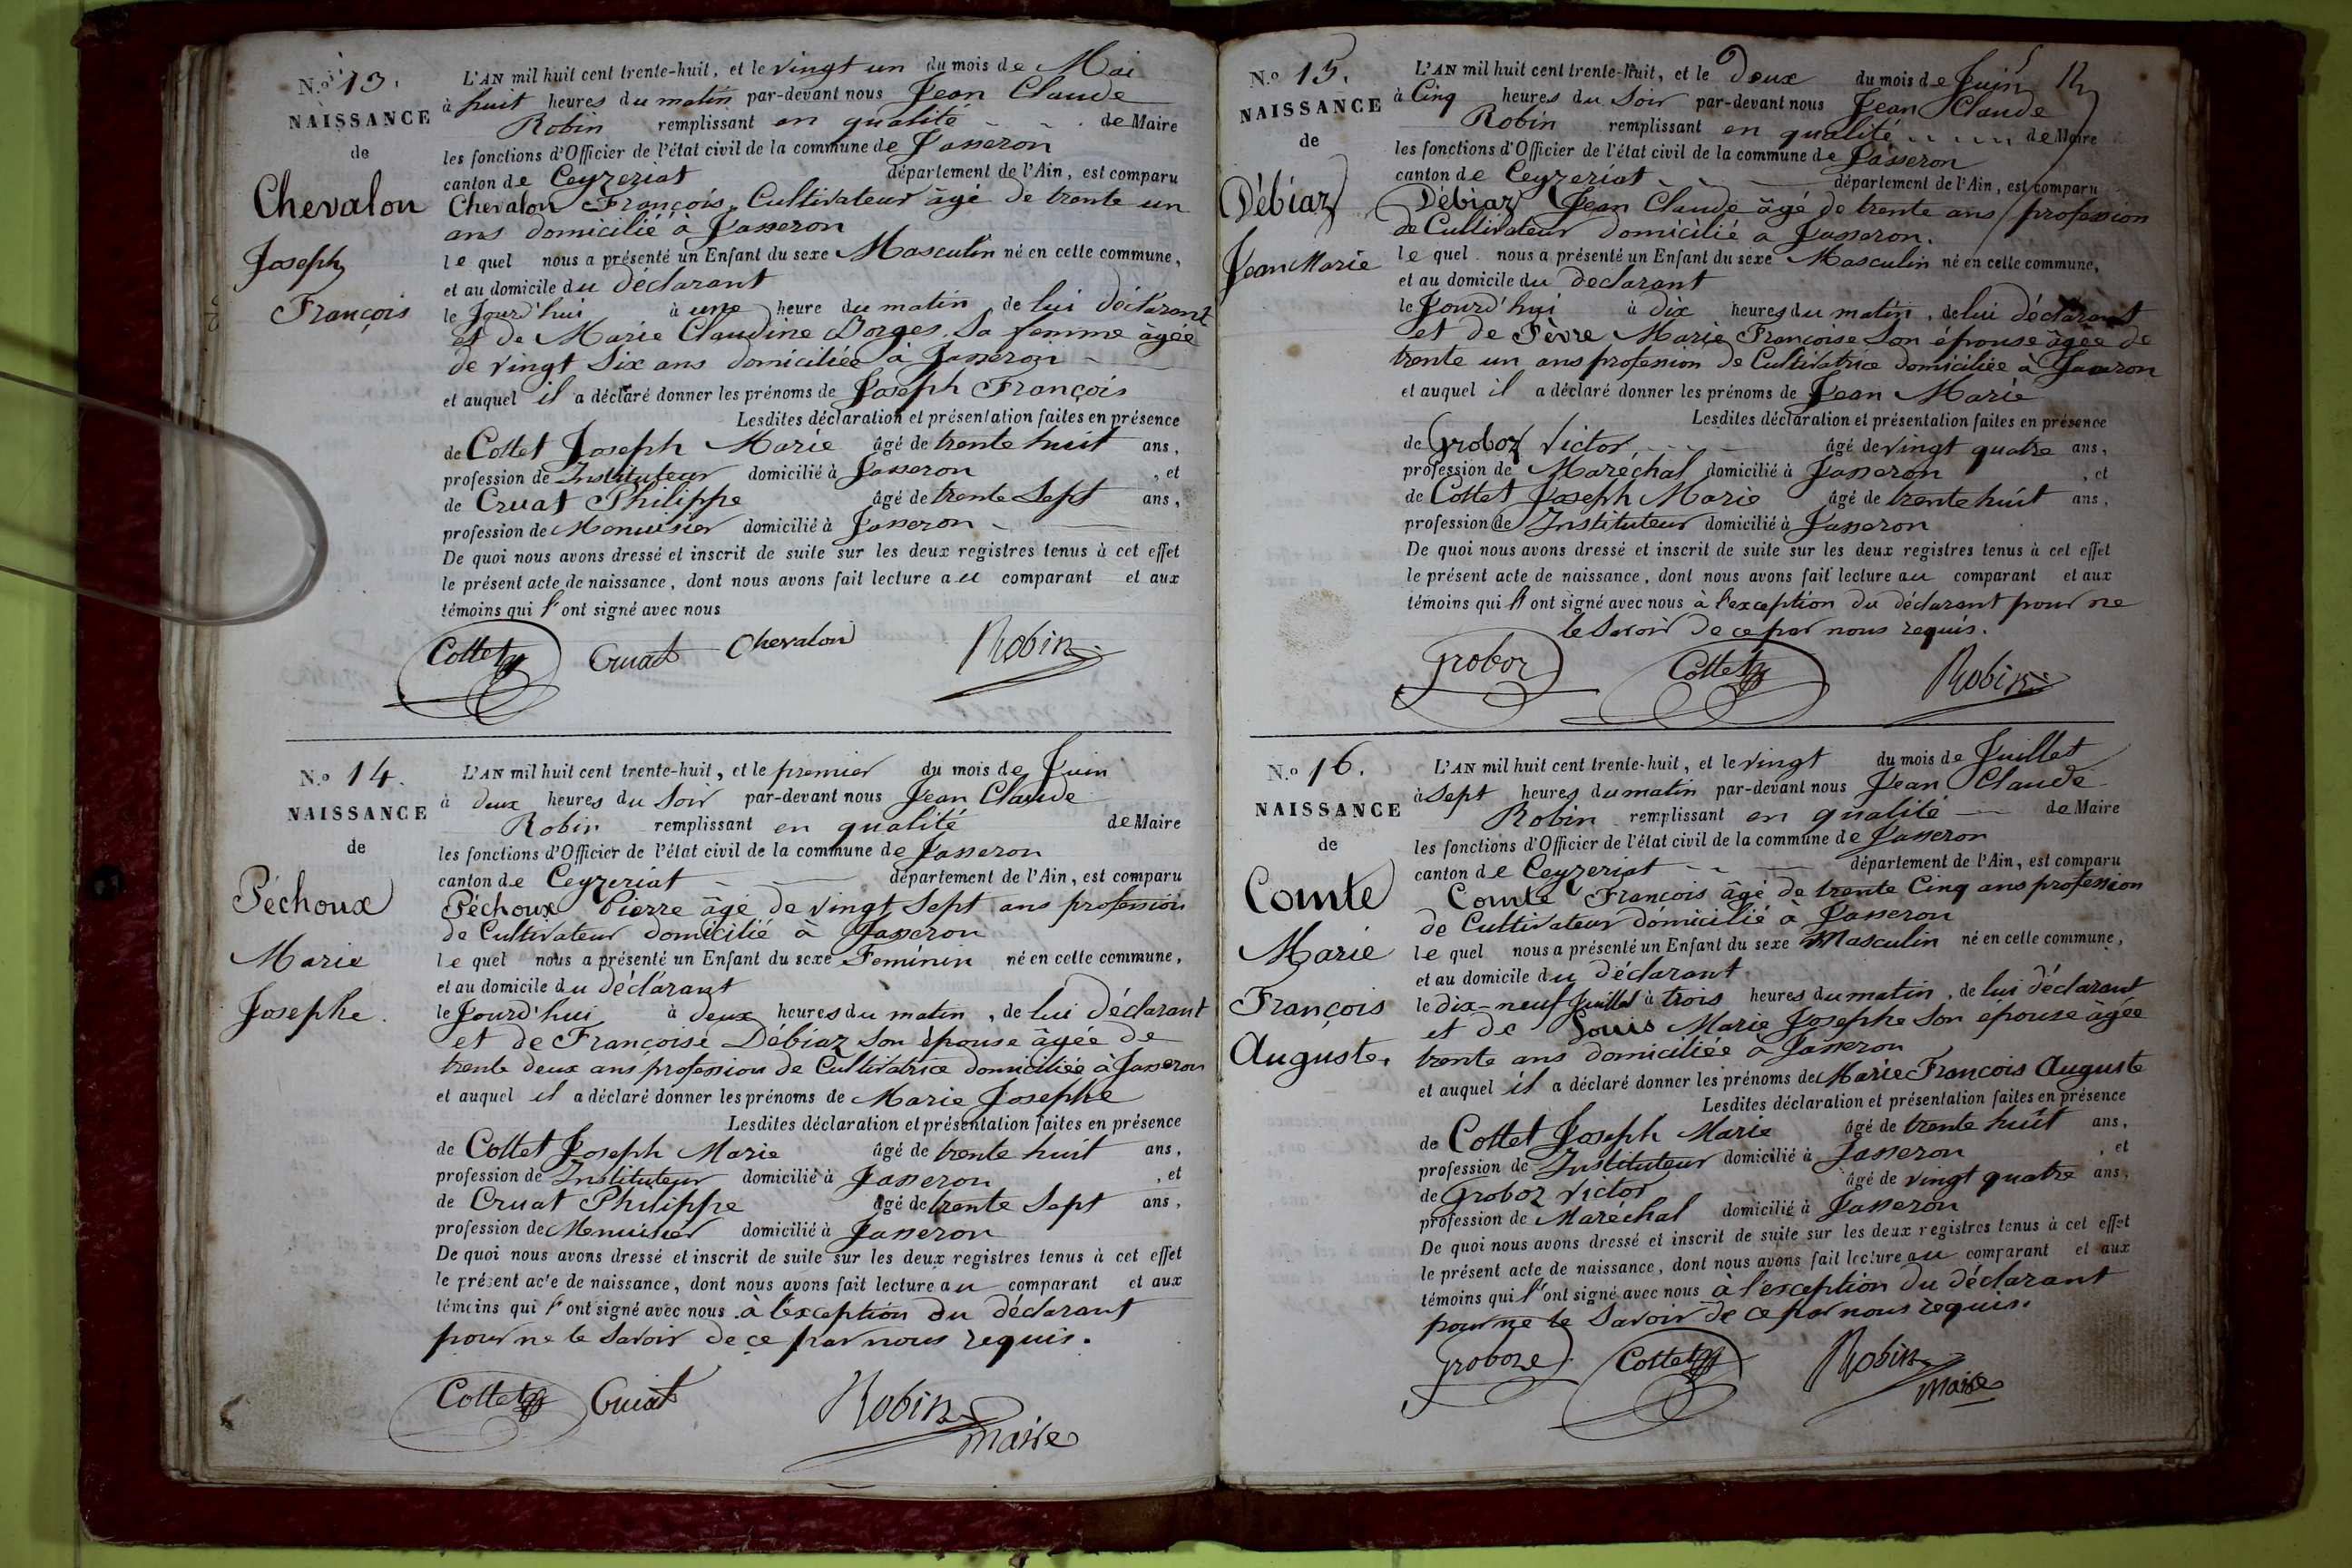 N.o 13.
NAISSANCE
de
Chevalon
Joseph
François
L'AN mil huit cent trente-huit, et le vingt un du mois de Mai
à huit heures du matin par-devant nous Jean Claude
Robin remplissant en qualité de Maire
les fonctions d'Officier de l'état civil de la commune de Jasseron
canton de Ceyzeriat département de l'Ain, est comparu
Chevalon François, Cultivateur âgé de trente un
ans domicilié à Jasseron
le quel nous a présenté un Enfant du sexe Masculin né en cette commune,
et au domicile du déclarant
le Jourd'hui à une heure du matin, de lui déclarant
et de Marie Claudine Borges Sa femme âgée
de vingt Six ans domiciliée à Jasseron
et auquel il a déclaré donner les prénoms de Joseph François
Lesdites déclaration et présentation faites en présence
de Cottet Joseph Marie âgé de trente huit ans,
profession de Instituteur domicilié à Jasseron, et
de Cruat Philippe âgé de trente Sept ans,
profession de Menuisier domicilié à Jasseron
De quoi nous avons dressé et inscrit de suite sur les deux registres tenus à cet effet
le présent acte de naissance, dont nous avons fait lecture au comparant et aux
témoins qui l'ont signé avec nous
Cottet Cruat Chevalon Robin
N.o 14.
NAISSANCE
de
Péchoux
Marie
Josephe.
L'AN mil huit cent trente-huit, et le premier du mois de Juin
à deux heures du Soir par-devant nous Jean Claude
Robin remplissant en qualité de Maire
les fonctions d'Officier de l'état civil de la commune de Jasseron
canton de Ceyzeriat département de l'Ain, est comparu
Péchoux Pierre âgé de vingt Sept ans profession
de Cultivateur domicilié à Jasseron
le quel nous a présenté un Enfant du sexe Feminin né en cette commune,
et au domicile du déclarant
le Jourd'hui à deux heures du matin, de lui déclarant
et de Françoise Débiaz Son épouse âgée de
trente deux ans profession de Cultivatrice domiciliée à Jasseron
et auquel il a déclaré donner les prénoms de Marie Josephe
Lesdites déclaration et présentation faites en présence
de Cottet Joseph Marie âgé de trente huit ans,
profession de Instituteur domicilié à Jasseron, et
de Cruat Philippe âgé de trente Sept ans,
profession de Menuisier domicilié à Jasseron
De quoi nous avons dressé et inscrit de suite sur les deux registres tenus à cet effet
le présent acte de naissance, dont nous avons fait lecture au comparant et aux
témoins qui l'ont signé avec nous à l'exception du déclarant
pour ne le Savoir de ce par nous requis.
Cottet Cruat Robin
maire
N.o 15.
NAISSANCE
de
Débiaz
Jean Marie
L'AN mil huit cent trente-huit, et le Deux du mois de Juin
à Cinq heures du Soir par-devant nous Jean Claude
Robin remplissant en qualité de Maire
les fonctions d'Officier de l'état civil de la commune de Jasseron
canton de Ceyzeriat département de l'Ain, est comparu
Débiaz Jean Claude âgé de trente ans profession
de Cultivateur domicilié à Jasseron.
le quel nous a présenté un Enfant du sexe Masculin né en cette commune,
et au domicile du Declarant
le Jourd'hui à dix heures du matin, de lui déclarant
et de Fèvre Marie Françoise Son épouse âgée de
trente un ans profession de Cultivatrice domiciliée à Jasseron
et auquel il a déclaré donner les prénoms de Jean Marie
Lesdites déclaration et présentation faites en présence
de Groboz Victor âgé de vingt quatre ans,
profession de Maréchal domicilié à Jasseron, et
de Cottet Joseph Marie âgé de trente huit ans,
profession de Instituteur domicilié à Jasseron
De quoi nous avons dressé et inscrit de suite sur les deux registres tenus à cet effet
le présent acte de naissance, dont nous avons fait lecture au comparant et aux
témoins qui l'ont signé avec nous à l'exception du déclarant pour ne
le Savoir de ce par nous requis.
Groboz Cottet Robin
N.o 16.
NAISSANCE
de
Comte
Marie
François
Auguste.
L'AN mil huit cent trente-huit, et le vingt du mois de Juillet
à Sept heures du matin par-devant nous Jean Claude
Robin remplissant en qualité de Maire
les fonctions d'Officier de l'état civil de la commune de Jasseron
canton de Ceyzeriat département de l'Ain, est comparu
Comte François âgé de trente Cinq ans profession
de Cultivateur domicilié à Jasseron
le quel nous a présenté un Enfant du sexe Masculin né en cette commune,
et au domicile du déclarant
le dix-neuf Juillet à trois heures du matin, de lui déclarant
et de Louis Marie Josephe Son épouse âgée
trente ans domiciliée à Jasseron
et auquel il a déclaré donner les prénoms de Marie François Auguste
Lesdites déclaration et présentation faites en présence
de Cottet Joseph Marie âgé de trente huit ans,
profession de Instituteur domicilié à Jasseron, et
de Groboz Victor âgé de vingt quatre ans,
profession de Maréchal domicilié à Jasseron
De quoi nous avons dressé et inscrit de suite sur les deux registres tenus à cet effet
le présent acte de naissance, dont nous avons fait lecture au comparant et aux
témoins qui l'ont signé avec nous à l'exception du déclarant
pour ne le Savoir de ce par nous requis.
Groboze Cottet Robin
maire